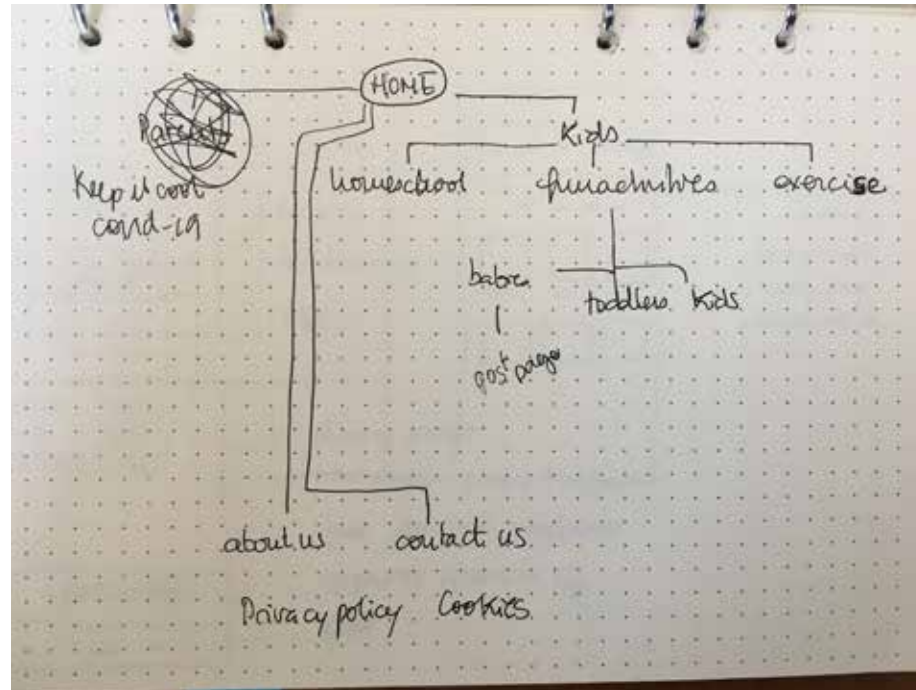 HOME
Parents
Kids
Keep it cool
covid-19
homeschool
exercise
babies
toddlers kids
post page
about us contact us
Privacy policy Cookies